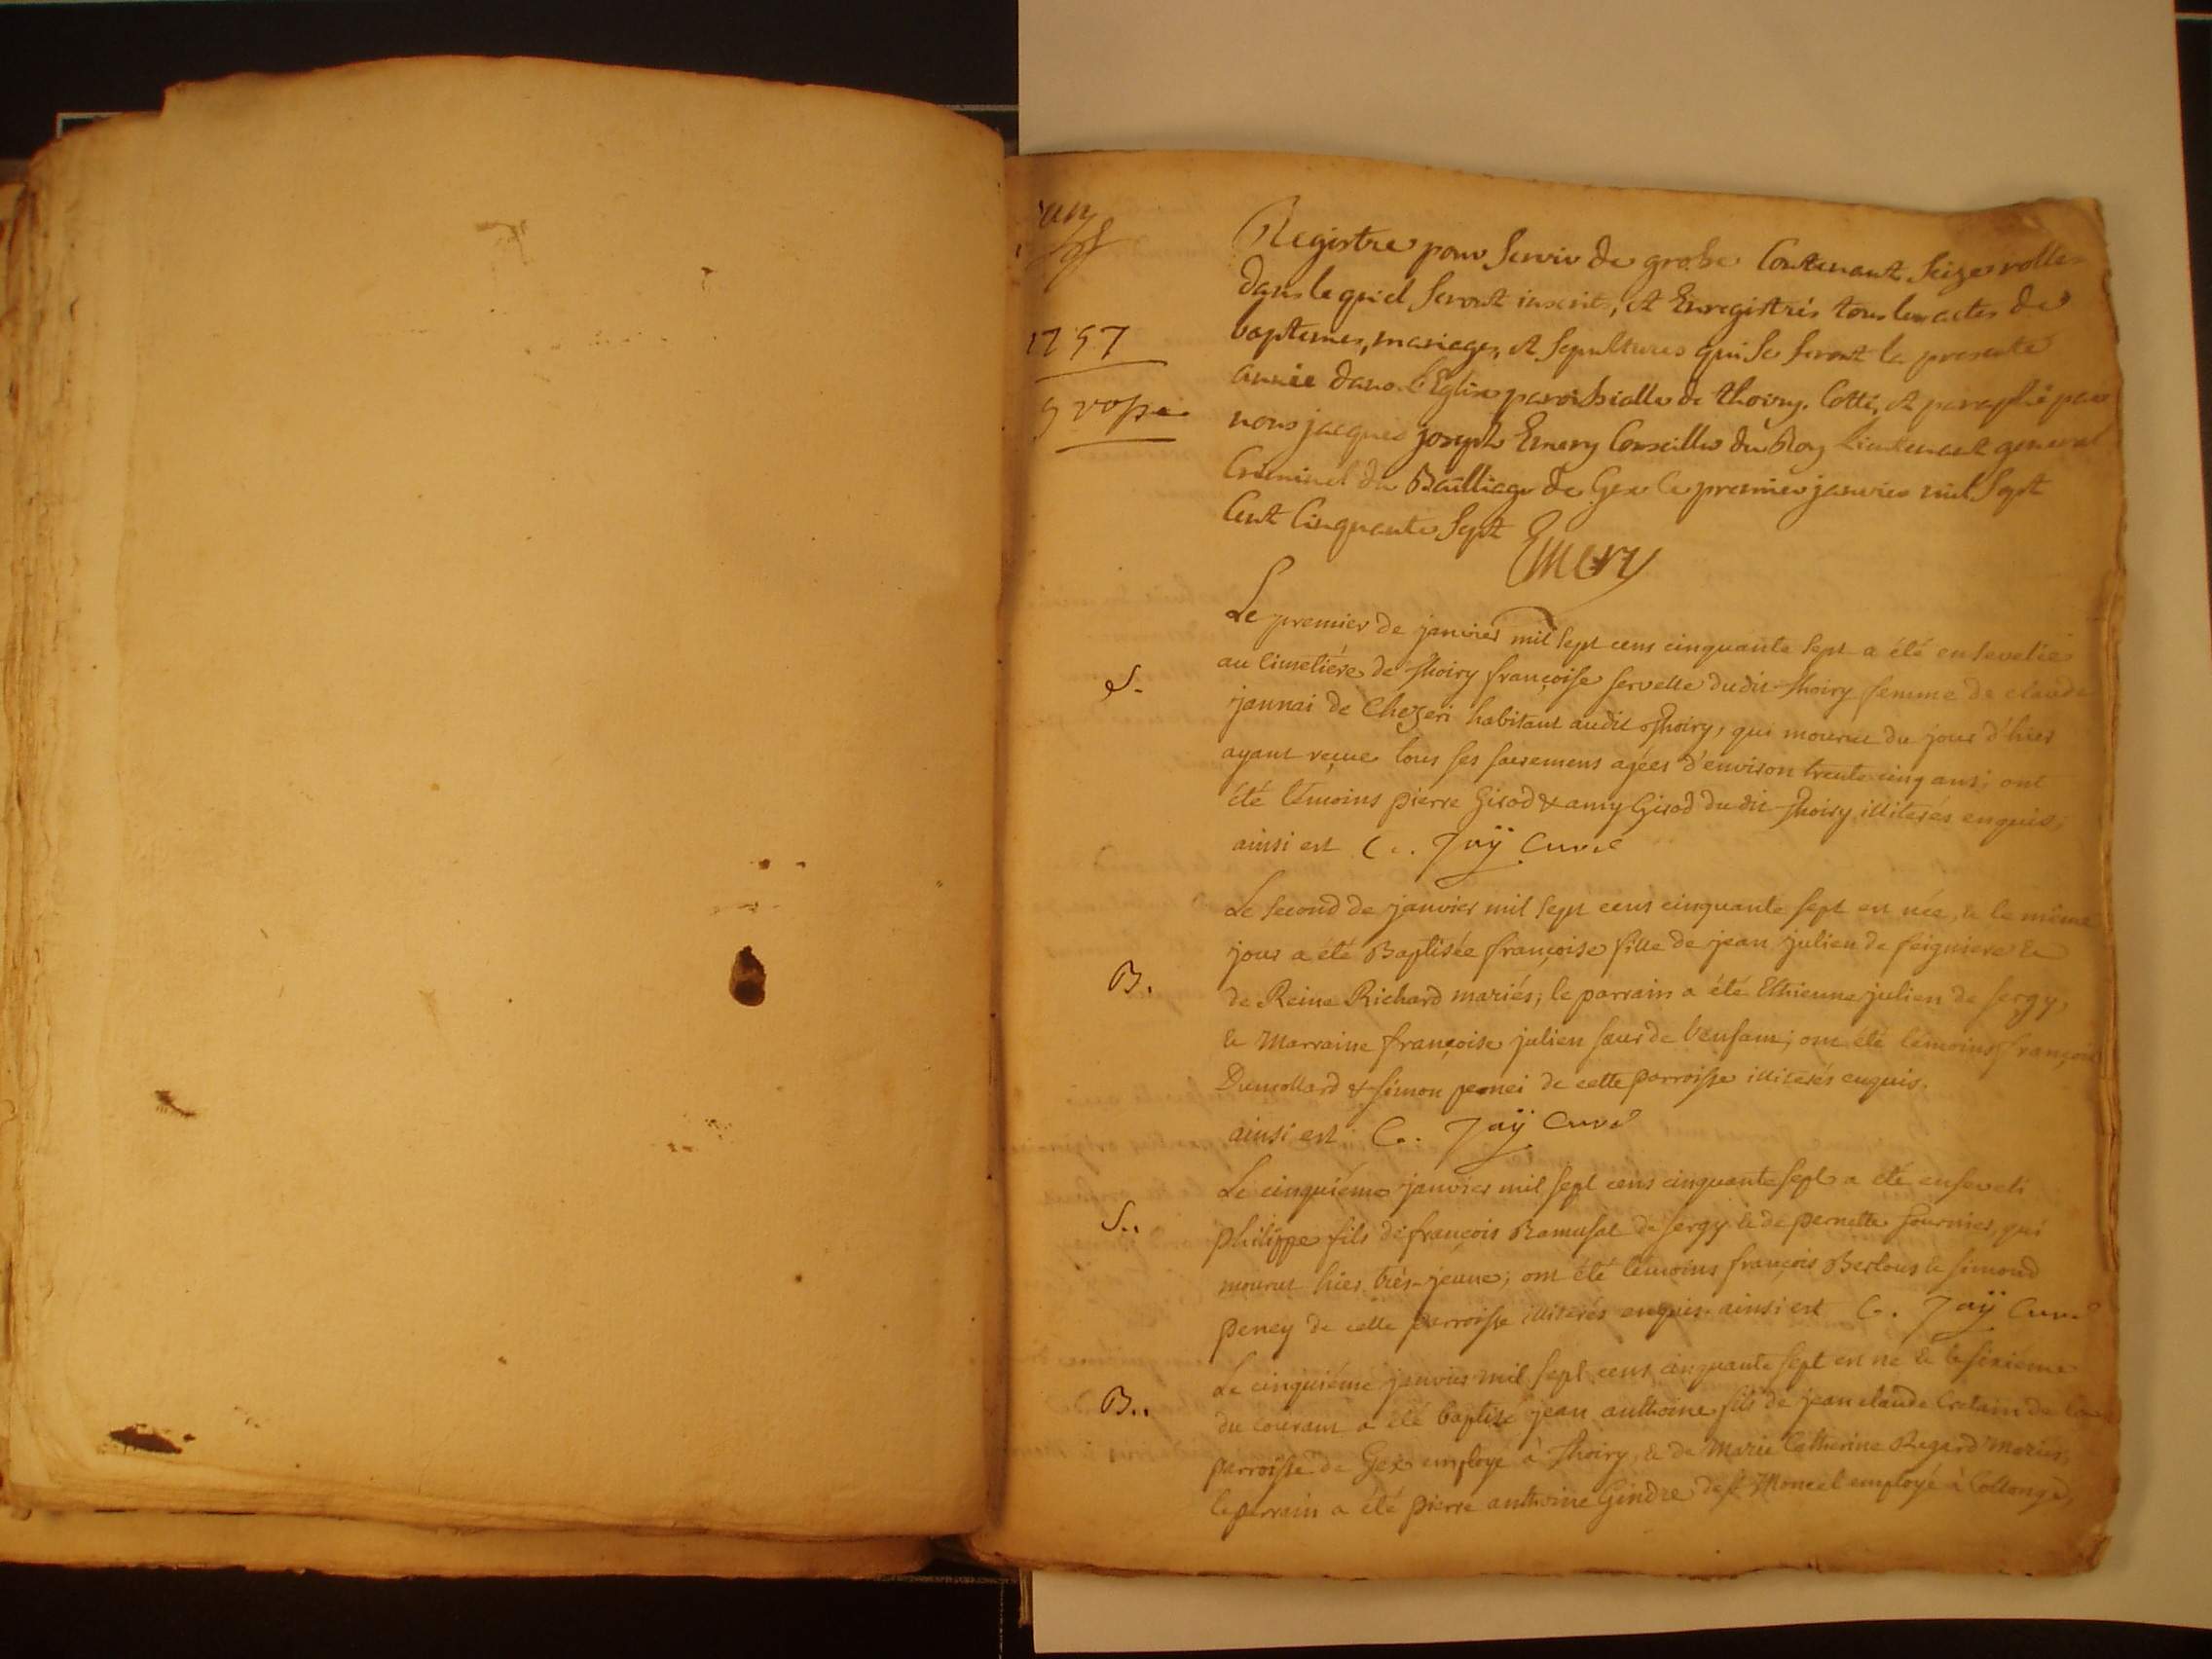 un
1757
grosse
Registre pour servir de grosse Contenant seize rolles
dans lequel seront inscrits, et Enregistrés tous les actes de
baptemes, mariages, et sepultures qui se feront la presente
année dans l'Eglise paroissialle de thoiry. Cotté, et paraphé par
nous jacques joseph Emery Conseiller du Roy Lieutenant general
Criminel du Bailliage de Gex le premier janvier mil sept
Cent Cinquante sept
Emery
Le premier de janvier mil sept cens cinquante sept a été ensevelie
S.
au Cimetiére de Thoiry françoise servette dudit Thoiry femme de claude
jannai de Chezeri habitant audit Thoiry, qui mourut du jour d'hier
ayant reçue tous ses sacremens agées d'environ trente cinq ans; ont
été témoins pierre Girod & amy Girod dudit Thoiry illiterés enquis;
ainsi est C. Jaÿ Curé
Le second de janvier mil sept cens cinquante sept est née, & le même
jour a été Baptisée françoise fille de jean julien de feigniere &
B.
de Reine Richard mariés; le parrain a été Ethienne julien de sergy,
& Marraine françoise julien sœur de l'enfant; ont été témoins françois
Dumollard & simon pernei de cette parroisse illiterés enquis.
ainsi est C. Jaÿ Curé
Le cinquiéme janvier mil sept cens cinquante sept a été enseveli
S..
philippe fils de françois Ramusat de sergy & de pernette fournier, qui
mourut hier très-jeune; ont été témoins françois Bertous & simond
peney de cette parroisse illiterés enquis. ainsi est C. Jaÿ Curé
Le cinquiéme janvier mil sept cens cinquante sept est né & le sixiéme
B..
du courant a été baptisé jean anthoine fils de jean claude Cretain de
parroisse de Gex employé à Thoiry, & de Marie Catherine Regard mariés,
le parrain a été pierre anthoine Gindre de st Moncel employé à Collonge,